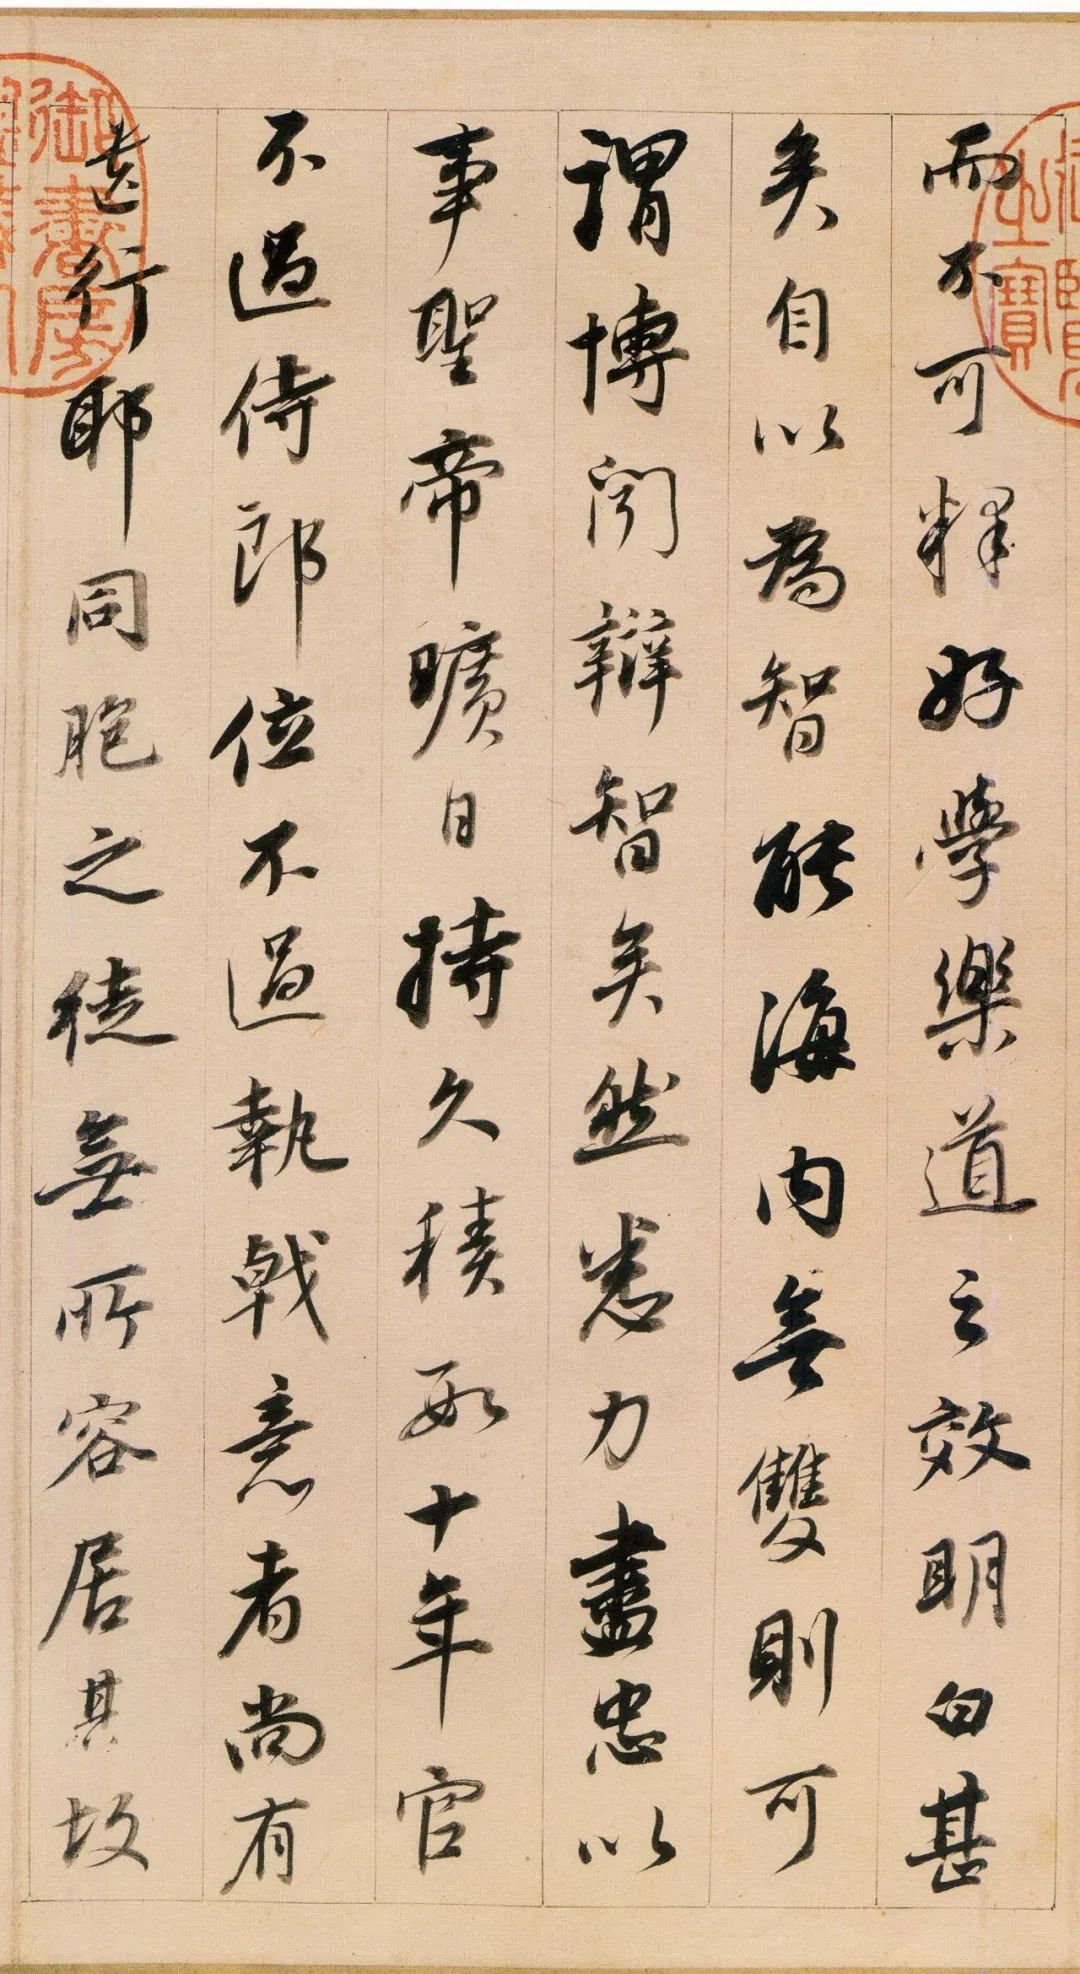 而不可釋好學樂道之效明白甚
矣自以為智能海內無雙則可
謂博聞辯智矣然悉力盡忠以
事聖帝曠日持久積數十年官
不過侍郎位不過執戟意者尚有
遺行耶同胞之徒無所容居其故
御書房